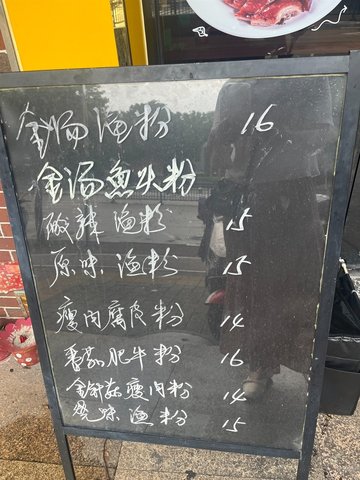 金汤渔粉 16
金汤鱼头粉
酸辣渔粉 15
原味渔粉 15
瘦肉腐皮粉 14
番茄肥牛粉 16
金针菇瘦肉粉 14
烧味渔粉 15